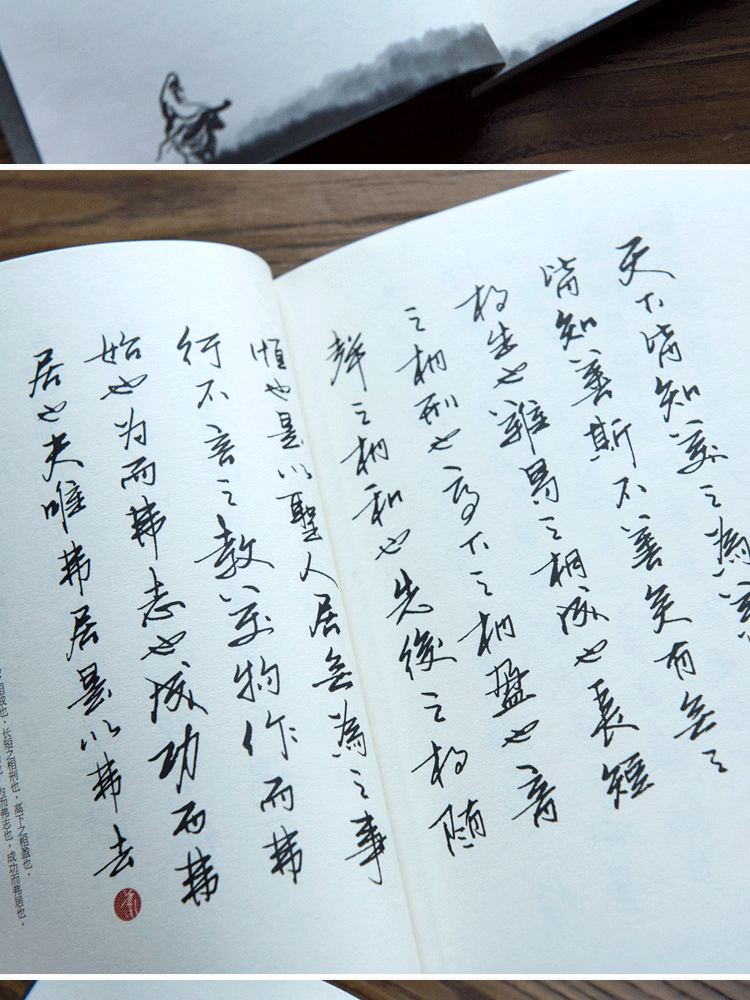 天下皆知美之為
皆知善斯不善矣有無之
相生也難易之相成也長短
之相刑也高下之相盈也音
聲之相和也先後之相隨
恒也是以聖人居無為之事
行不言之教萬物作而弗
始也为而弗志也成功而弗
居也夫唯弗居是以弗去
相成也，长短之相刑也，高下之相盈也，
为而弗志也，成功而弗居也，